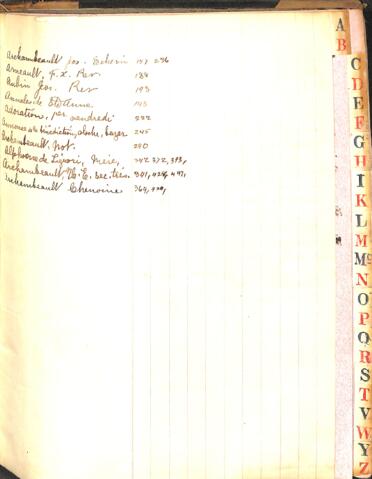 Archambeault Jos. Echevin 157 236
Arneault, F. X. Rev 184
Aubin Jos. Rev 193
Annales de Ste Anne 145
Adoration, per vendredi 222
Annonce de la bénédiction, cloche, bazar 245
Archambeault, Not. 290
Alphonse de Liguori, Mère, 342 372, 393,
Archambeault, sec. trés. 301, 424, 471,
Archambeault Chanoine 364,
A
B
C
D
E
F
G
H
I
K
L
M
Mc
N
O
P
Q
R
S
T
V
W
Y
Z